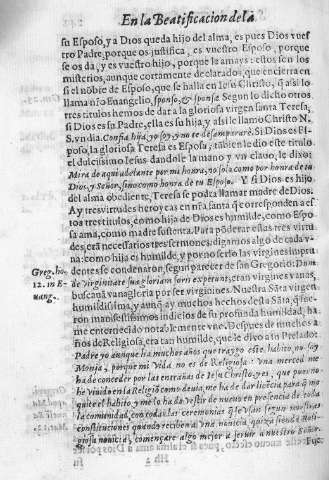 En la Beatificacion de la
su Esposo, y a Dios queda hijo del alma, es pues Dios vues-
tro Padre, porque os justifica, es vuestro Esposo, porque
se os da, y es vuestro hijo, porque le amays: estos son los
misterios, aunque cortamente declarados, que encierra en
si el nõbre de Esposo, que se halla en Iesu Christo, q̃ assi lo
llama nr̃o Euangelio, sponso, & sponsæ. Segun lo dicho otros
tres titulos hemos de dar a la gloriosa virgen santa Teresa,
si Dios es su Padre, ella es su hija, y assi le llamo Christo N.
S. vn dia. Confia hija, yo soy, y no te desamparare. Si Dios es Es-
poso, la gloriosa Teresa es Esposa; tãbien le dio este titulo
el dulcissimo Iesus dandole la mano y vn clauo, le dixo:
Mira de aqui adelante por mi honra, no solo como por honra de tu
Dios, y Señor, sino como honra de tu Esposo. Y si Dios es hijo
del alma obediente, Teresa se podra llamar madre de Dios.
Ay tres virtudes heroycas en nr̃a santa q̃ corresponden a es
tos tres titulos; como hija de Dios es humilde, como Espo
sa ama, como madre sustenta. Para põderar estas tres virtu
des, erã necessarios tres sermones: digamos algo de cada v-
na: como hija es humilde, y por no serlo las virgines impru
dentes se condenaron, segun parecer de san Gregorio: Dum
de virginitate sua gloriam foris expetunt, eran virgines vanas,
buscauã vanagloria por ser virgines. Nuestra Sãta virgen
humildissima, y aunq̃ ay muchos hechos desta Sãta, q̃ fue-
ron manifestissimos indicios de su profunda humildad, ha
me enternecido notablemente vno. Despues de muchos a-
ños de Religiosa, era tan humilde, que le dixo a vn Prelado:
Padre yo aunque ha muchos años que traygo este habito, no soy
Monja, porque mi vida no es de Religiosa: Vna merced me
ha de conceder por las entrañas de Iesu Christo, y es, que pues no
he viuido en la Religiõ como deuia, me ha de dar licẽcia para q̃ me
quite el habito, y me lo ha de vestir de nuevo en presencia de toda
la comunidad, con todas las ceremonias que se vsan segun nuestras
constituciones quando reciben a vna nouicia, quiza siendo Reli-
giosa nouicia, començare algo mejor a seruir a nuestro Señor.
Greg. ho.
12. in E-
uang.